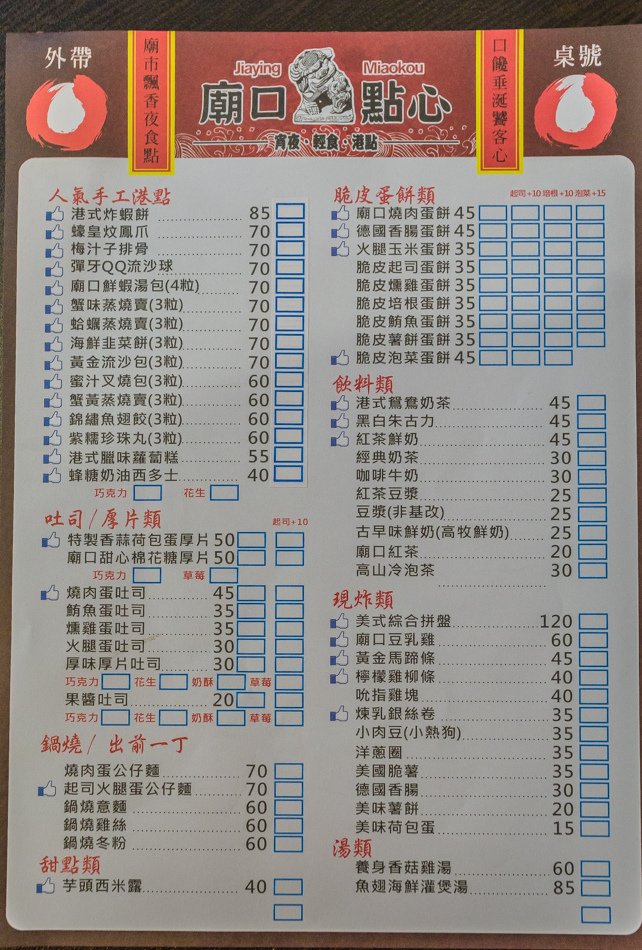 外帶
廟市飄香夜食點
Jiaying Miaokou
廟口點心
宵夜·輕食·港點
口饞垂涎饕客心
桌號
人氣手工港點
港式炸蝦餅 85
蠔皇炆鳳爪 70
梅汁子排骨 70
彈牙QQ流沙球 70
廟口鮮蝦湯包(4粒) 70
蟹味蒸燒賣(3粒) 70
蛤蠣蒸燒賣(3粒) 70
海鮮韭菜餅(3粒) 70
黃金流沙包(3粒) 70
蜜汁叉燒包(3粒) 60
蟹黃蒸燒賣(3粒) 60
錦繡魚翅餃(3粒) 60
紫糯珍珠丸(3粒) 60
港式臘味蘿蔔糕 55
蜂糖奶油西多士 40
巧克力 花生
吐司/厚片類 起司+10
特製香蒜荷包蛋厚片 50
廟口甜心棉花糖厚片 50
巧克力 草莓
燒肉蛋吐司 45
鮪魚蛋吐司 35
燻雞蛋吐司 35
火腿蛋吐司 30
厚味厚片吐司 30
巧克力 花生 奶酥 草莓
果醬吐司 20
巧克力 花生 奶酥 草莓
鍋燒/出前一丁
燒肉蛋公仔麵 70
起司火腿蛋公仔麵 70
鍋燒意麵 60
鍋燒雞絲 60
鍋燒冬粉 60
甜點類
芋頭西米露 40
脆皮蛋餅類 起司+10 培根+10 泡菜+15
廟口燒肉蛋餅 45
德國香腸蛋餅 45
火腿玉米蛋餅 35
脆皮起司蛋餅 35
脆皮燻雞蛋餅 35
脆皮培根蛋餅 35
脆皮鮪魚蛋餅 35
脆皮薯餅蛋餅 35
脆皮泡菜蛋餅 45
飲料類
港式鴛鴦奶茶 45
黑白朱古力 45
紅茶鮮奶 45
經典奶茶 30
咖啡牛奶 30
紅茶豆漿 25
豆漿(非基改) 25
古早味鮮奶(高牧鮮奶) 25
廟口紅茶 20
高山冷泡茶 30
現炸類
美式綜合拼盤 120
廟口豆乳雞 60
黃金馬蹄條 45
檸檬雞柳條 40
吮指雞塊 40
煉乳銀絲卷 35
小肉豆(小熱狗) 35
洋蔥圈 35
美國脆薯 35
德國香腸 30
美味薯餅 20
美味荷包蛋 15
湯類
養身香菇雞湯 60
魚翅海鮮灌煲湯 85